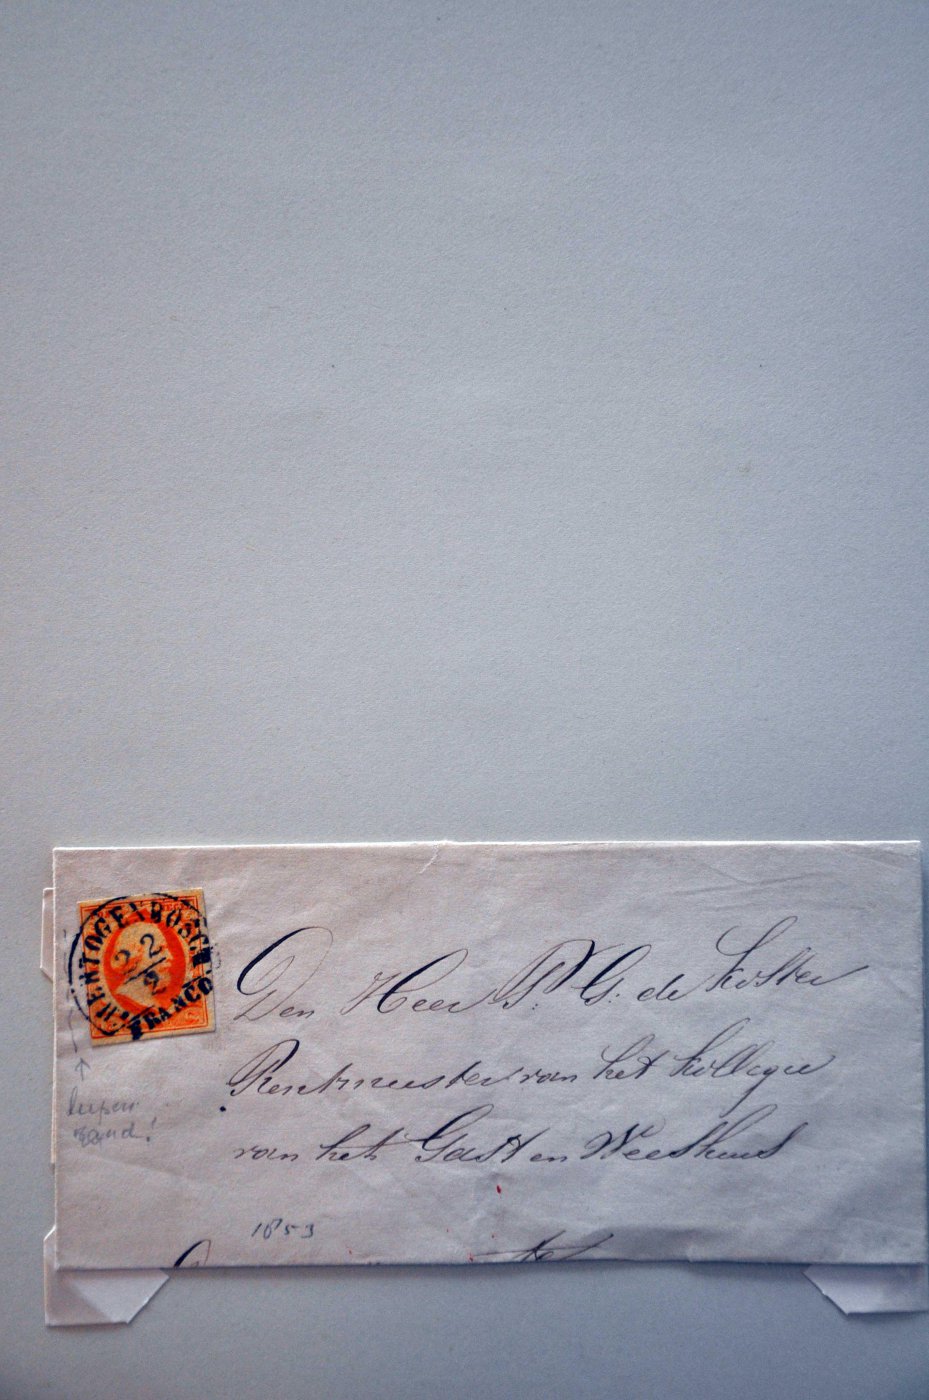 'S HERTOGENBOSCH
2/2
FRANCO
Den Heer P. G. de Koster
Rentmeester van het Kollegie
van het Gast en Weeshuis
1853